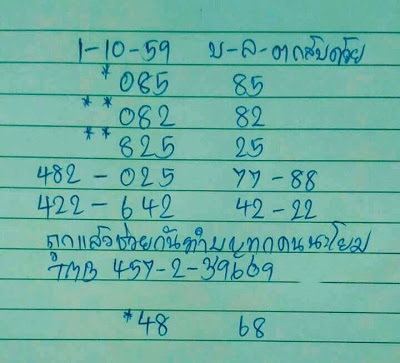 1-10-59 บ-ล-ตกสับด้วย
*085 85
**082 82
**825 25
482-025 77-88
422-642 42-22
ถูกแล้วช่วยกันทำบุญทุกคนนะโยม
TMB 457-2-39669
*48 68